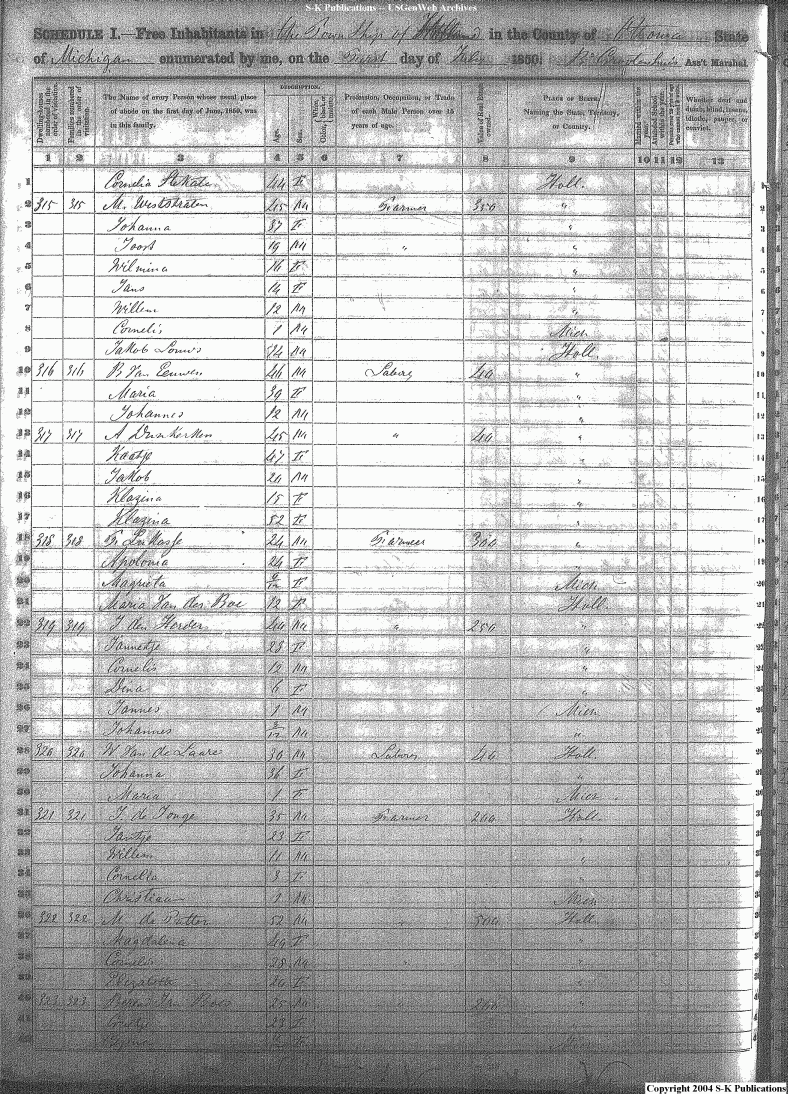 S-K Publications -- USGenWeb Archives
SCHEDULE I.—Free Inhabitants in the Township of Holland in the County of Ottowa State
of Michigan enumerated by me, on the First day of July 1850. Ass't Marshal.
DESCRIPTION.
Dwelling-houses numbered in the order of visitation. Families numbered in the order of visitation. The Name of every Person whose usual place of abode on the first day of June, 1850, was in this family. Age. Sex. White, black, or mulatto. Profession, Occupation, or Trade of each Male Person over 15 years of age. Value of Real Estate owned. PLACE OF BIRTH. Naming the State, Territory, or Country. Married within the year. Attended School within the year. Persons over 20 y'rs of age who cannot read & write. Whether deaf and dumb, blind, insane, idiotic, pauper, or convict.
1 2 3 4 5 6 7 8 9 10 11 12 13
1 Cornelia 44 F Holl. 1
2 315 315 M. Weststraten 45 M Farmer 350 " 2
3 Johanna 37 F " 3
4 Joost 19 M " " 4
5 Wilmina 16 F " 5
6 Jans 14 F " 6
7 Willem 12 M " 7
8 Cornelis 1 M Mich 8
9 Jakob 24 M Holl. 9
10 316 316 B. Van Eeuwen 46 M Labory 40 " 10
11 Maria 39 F " 11
12 Johannes 12 M " 12
13 317 317 A Dunkerken 45 M " 40 " 13
14 Kaatje 47 F " 14
15 Jakob 20 M " 15
16 Klazina 15 F " 16
17 Klazina 52 F " 17
18 318 318 24 M Farmer 300 " 18
19 Apolonia 24 F 19
20 Magrieta F Mich 20
21 Maria Van der Boe 12 F Holl. 21
22 319 319 J den Herder 40 M " 250 " 22
23 Jannetje 28 F " 23
24 Cornelis 12 M " 24
25 Dina 6 F " 25
26 Jannes 1 M Mich 26
27 Johannes M " 27
28 320 320 W Van de Laare 30 M Labory 40 Holl. 28
29 Johanna 36 F " 29
30 Maria 1 F Mich. 30
31 321 321 J. de Jonge 35 M Farmer 200 Holl. 31
32 Jantje 23 F "
33 Willem 11 M "
34 Cornelia 3 F "
35 Christiaan 1 M Mich
36 322 322 M. de Putter 52 M 500 Holl.
37 Magdalena 49 F "
38 Cornelis 28 M " "
39 Elizabeth 20 F "
40 323 323 25 M " 200 "
41 23 F "
42
Copyright 2004 S-K Publications